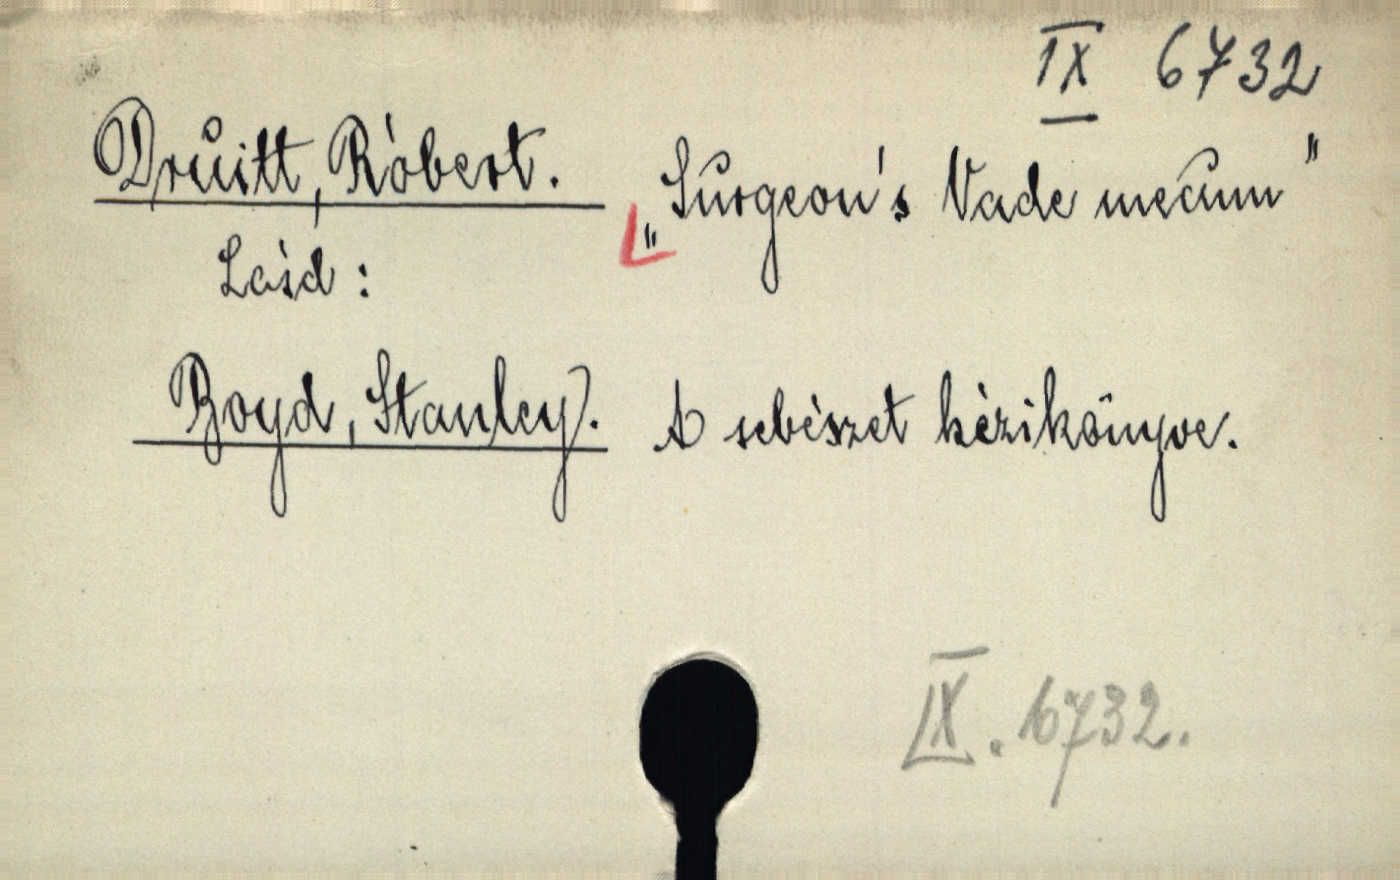 IX 6732
Druitt, Róbert. „Surgeon's Vade mecum"
Lásd :
Boyd, Stanley). A sebészet kézikönyve.
IX. 6732.